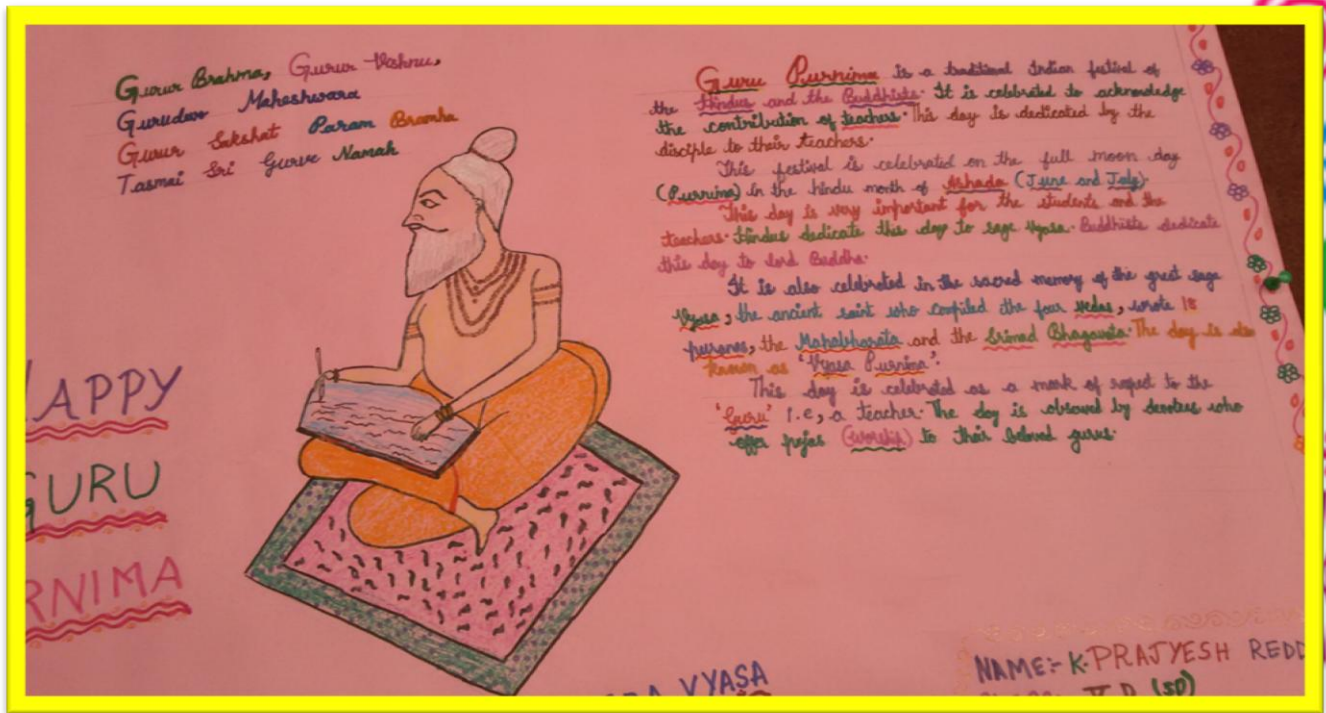 Gurur Brahma, Gurur Vishnu,
Gurudevo Maheshwara
Gurur Sakshat Param Bramha
Tasmai Sri Gurve Namah
HAPPY
GURU
RNIMA
Guru Purnima is a traditional Indian festival of
the Hindus and the Buddhists. It is celebrated to acknowledge
the contribution of teachers. This day is dedicated by the
disciple to their teachers.
This festival is celebrated on the full moon day
(Purnima) in the hindu month of Ashada (June and July).
This day is very important for the students and the
teachers. Hindus dedicate this day to sage Vyasa. Buddhists dedicate
this day to lord Buddha.
It is also celebrated in the sacred memory of the great sage
Vyasa, the ancient saint who compiled the four vedas, wrote 18
puranas, the Mahabharata and the Srimad Bhagavata. The day is also
known as 'Vyasa Purnima'.
This day is celebrated as a mark of respect to the
'Guru' i.e, a teacher. The day is observed by devotees who
offer pujas (worship) to their beloved gurus.
VYASA
NAME:- K. PRAJYESH REDD
(SD)